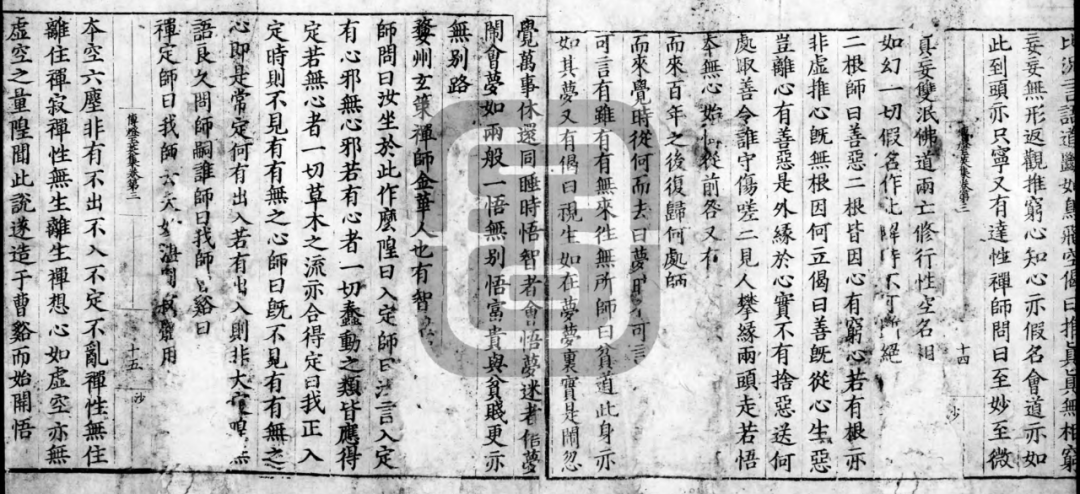 比況言語道斷如鳥飛空偈曰推眞眞無相窮
妄妄無形返觀推窮心知心亦假名會道亦如
此到頭亦只寧又有達性禪師問曰至妙至微
眞妄雙泯佛道兩亡修行性空名相
傳燈玉英集卷第三
十四
沙
如幻一切假名作此解時不可斷絕
二根師曰善惡二根皆因心有窮心若有根亦
非虛推心既無根因何立偈曰善既從心生惡
豈離心有善惡是外緣於心實不有捨惡送何
處取善令誰守傷嗟二見人攀緣兩頭走若悟
本無心始悔從前咎又有
而來百年之後復歸何處師
而來覺時從何而去曰夢時不可言
可言有雖有有無來往無所師曰貧道此身亦
如其夢又有偈曰視生如在夢夢裏實是鬧忽
覺萬事休還同睡時悟智者會悟夢迷者信夢
鬧會夢如兩般一悟無別悟富貴與貧賤更亦
無別路
婺州玄策禪師金華人也有智隍
師問曰汝坐於此作麼隍曰入定師曰汝言入定
有心邪無心邪若有心者一切蠢動之類皆應得
定若無心者一切草木之流亦合得定曰我正入
定時則不見有有無之心師曰既不見有有無之
心即是常定何有出入若有出入則非大定隍無
語良久問師嗣誰師曰我師曹谿曰
傳燈玉英集卷第三
十五
沙
禪定師曰我師云夫妙湛圓寂體用
本空六塵非有不出不入不定不亂禪性無住
離住禪寂禪性無生離生禪想心如虛空亦無
虛空之量隍聞此說遂造于曹谿而始開悟